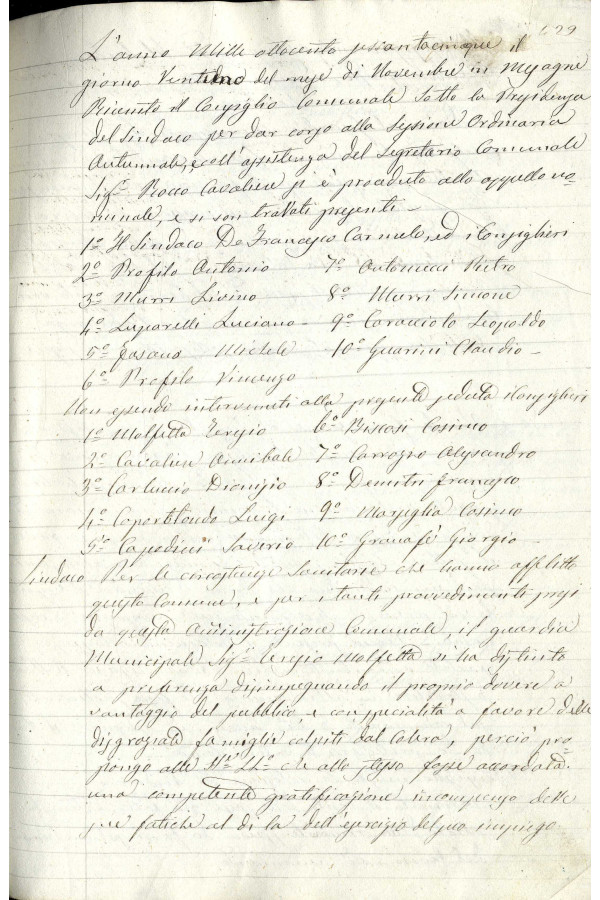 L'anno Mille ottocento sessantacinque il
giorno Ventuno del mese di Novembre in Mesagne
Riunito il Consiglio Comunale sotto la Presidenza
del Sindaco per dar corso alla Sessione Ordinaria
Autunnale, coll'assistenza del Segretario Comunale
Sigr. Rocco Cavaliere si è proceduto allo appello no-
minale, e si son trovati presenti -
1º Il Sindaco De Francesco Carmelo, ed i Consiglieri
2º Profilo Antonio 7º Antonucci Pietro
3º Murri Livino 8º Murri Simone
4º Luparelli Luciano - 9º Caracciolo Leopoldo
5º Fasano Michele 10º Guarini Claudio -
6º Profilo Vincenzo
Non essendo intervenuti alla presente seduta i Consiglieri
1º Molfetta Tersio 6º Cosimo
2º Cavaliere Annibale 7º Carrozzo Alessandro
3º Carluccio Dionigio 8º Demitri Francesco
4º Luigi 9º Marseglia Cosimo
5º Capodieci Saverio 10º Granafè Giorgio -
Sindaco Per le circostanze Sanitarie che hanno afflitto
questo Comune, e per i tanti provvedimenti presi
da questa Amministrazione Comunale, il guardia
Municipale Sigr. Tersio Molfetta si ha distinto
a preferenza disimpegnando il proprio dovere a
vantaggio del pubblico, e con specialità a favore delle
disgraziate famiglie colpiti dal Colera, perciò pro-
pongo alle SSrie LLre che allo stesso fosse accordata
una competente gratificazione in compenso delle
sue fatiche al di la dell'esercizio del suo impiego